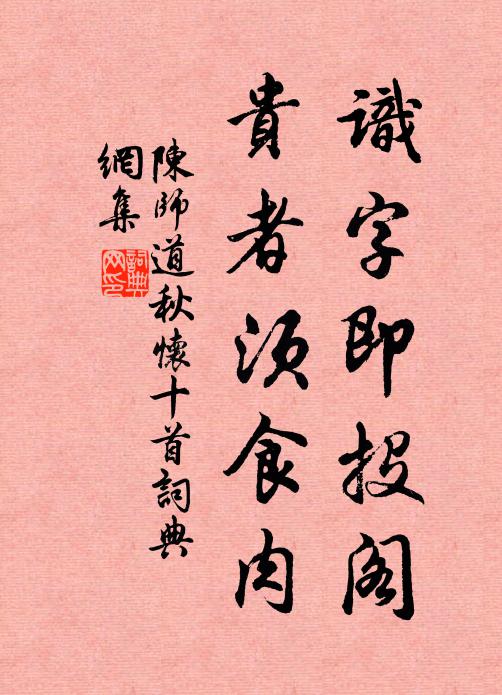 識字即投閣
貴者須食肉
陳師道秋懷十首詞典
網集
詞典
网印